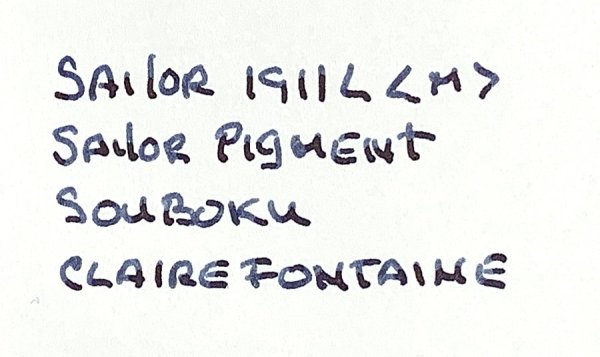 SAILOR 1911L <M>
SAILOR PIGMENT
SOUBOKU
CLAIREFONTAINE